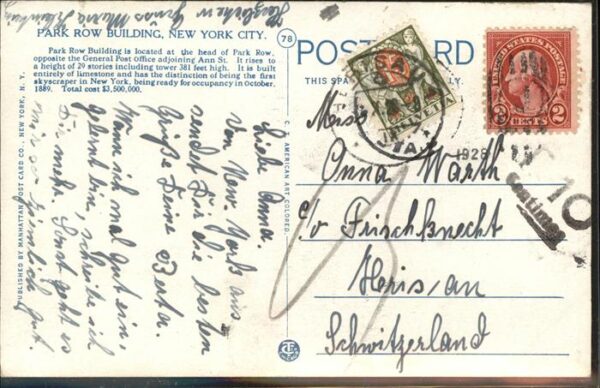 Herzlichen Gruss Maria
PARK ROW BUILDING, NEW YORK CITY.
Park Row Building is located at the head of Park Row,
opposite the General Post Office adjoining Ann St. It rises to
a height of 29 stories including tower 381 feet high. It is built
entirely of limestone and has the distinction of being the first
skyscraper in New York, being ready for occupancy in October.
1889. Total cost $3,500,000.
78
POST CARD
THIS SPACE
PUBLISHED BY MANHATTAN POST CARD CO., NEW YORK, N. Y.
C. T. AMERICAN ART COLORED.
Liebe Anna.
Von New York aus
sendet Dir die besten
Grüsse Deine Berta.
Wann ich mal gut ein,
gelernt bin, schreibe ich
Dir mehr. Sonst geht es
mir so ziemlich gut.
HELVETIA
UNITED STATES POSTAGE
2 CENTS 2
1928
T 10
Centimes
Miss
Anna Warth
c/o Frischknecht
Heris/an
Schwitzerland